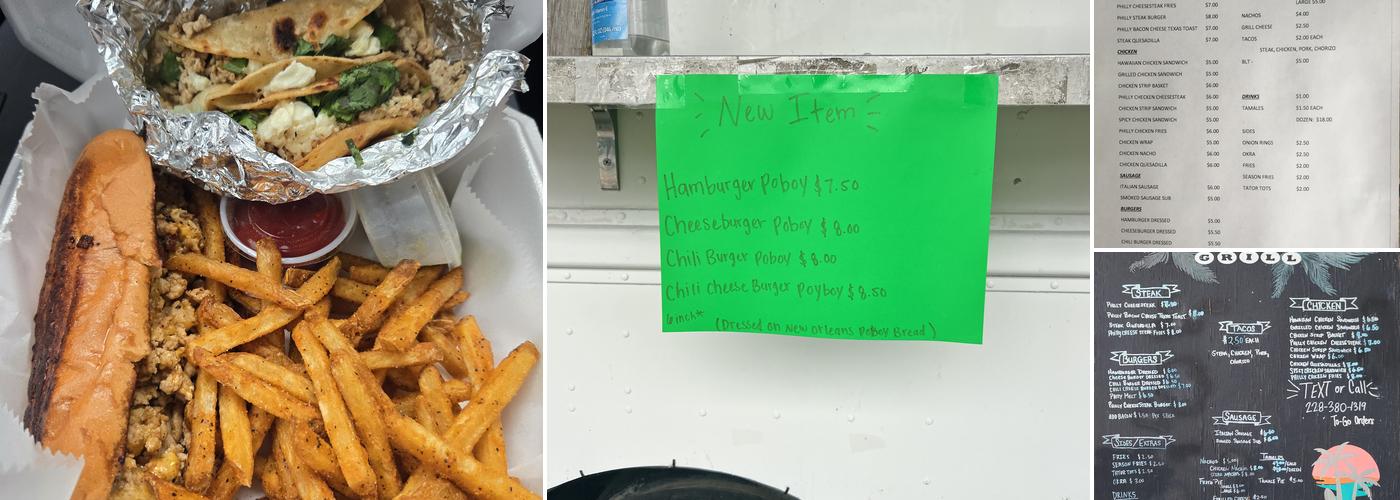 New Item
Hamburger Poboy $7.50
Cheeseburger Poboy $8.00
Chili Burger Poboy $8.00
Chili Cheese Burger Poyboy $8.50
6inch*
(Dressed on New Orleans PoBoy Bread)
PHILLY CHEESESTEAK FRIES $7.00
PHILLY STEAK BURGER $8.00
PHILLY BACON CHEESE TEXAS TOAST $7.00
STEAK QUESADILLA $7.00
CHICKEN
HAWAIIAN CHICKEN SANDWICH $5.00
GRILLED CHICKEN SANDWICH $5.00
CHICKEN STRIP BASKET $6.00
PHILLY CHICKEN CHEESESTEAK $6.00
CHICKEN STRIP SANDWICH $5.00
SPICY CHICKEN SANDWICH $5.00
PHILLY CHICKEN FRIES $6.00
CHICKEN WRAP $5.00
CHICKEN NACHO $6.00
CHICKEN QUESADILLA $6.00
SAUSAGE
ITALIAN SAUSAGE $6.00
SMOKED SAUSAGE SUB $5.00
BURGERS
HAMBURGER DRESSED $5.00
CHEESEBURGER DRESSED $5.50
CHILI BURGER DRESSED $5.50
LARGE $5.00
NACHOS $4.00
GRILL CHEESE $2.50
TACOS $2.00 EACH
STEAK, CHICKEN, PORK, CHORIZO
BLT - $5.00
DRINKS $1.00
TAMALES $1.50 EACH
DOZEN: $18.00
SIDES
ONION RINGS $2.50
OKRA $2.50
FRIES $2.00
SEASON FRIES $2.00
TATOR TOTS $2.00
GRILL
STEAK
PHILLY CHEESESTEAK
PHILLY BACON CHEESE TEXAS TOAST $8.00
STEAK QUESADILLA $7.00
BURGERS
HAMBURGER DRESSED $6.00
CHEESE BURGER DRESSED $6.50
CHILI BURGER DRESSED $6.50
CHILI CHEESE BURGER DRESSED $7.00
PATTY MELT $6.50
PHILLY CHEESESTEAK BURGER
ADD BACON $1.50 PER STICK
SIDES/EXTRAS
FRIES $2.50
SEASON FRIES $2.50
TATOR TOTS $2.50
OKRA $3.00
DRINKS
TACOS
$2.50 EACH
STEAK, CHICKEN, PORK,
CHORIZO
SAUSAGE
ITALIAN SAUSAGE
SMOKED SAUSAGE SUB
NACHOS
CHICKEN NACHOS
CHICKEN
HAWAIIAN CHICKEN SANDWICH $6.50
GRILLED CHICKEN SANDWICH $6.50
CHICKEN STRIP BASKET
PHILLY CHICKEN CHEESESTEAK
CHICKEN STRIP SANDWICH
CHICKEN WRAP $6.00
CHICKEN QUESADILLAS
SPICY CHICKEN SANDWICH
PHILLY CHICKEN FRIES
TEXT or Call
228-380-1319
To-Go Orders
TAMALES
TAMALE PIE $5.00